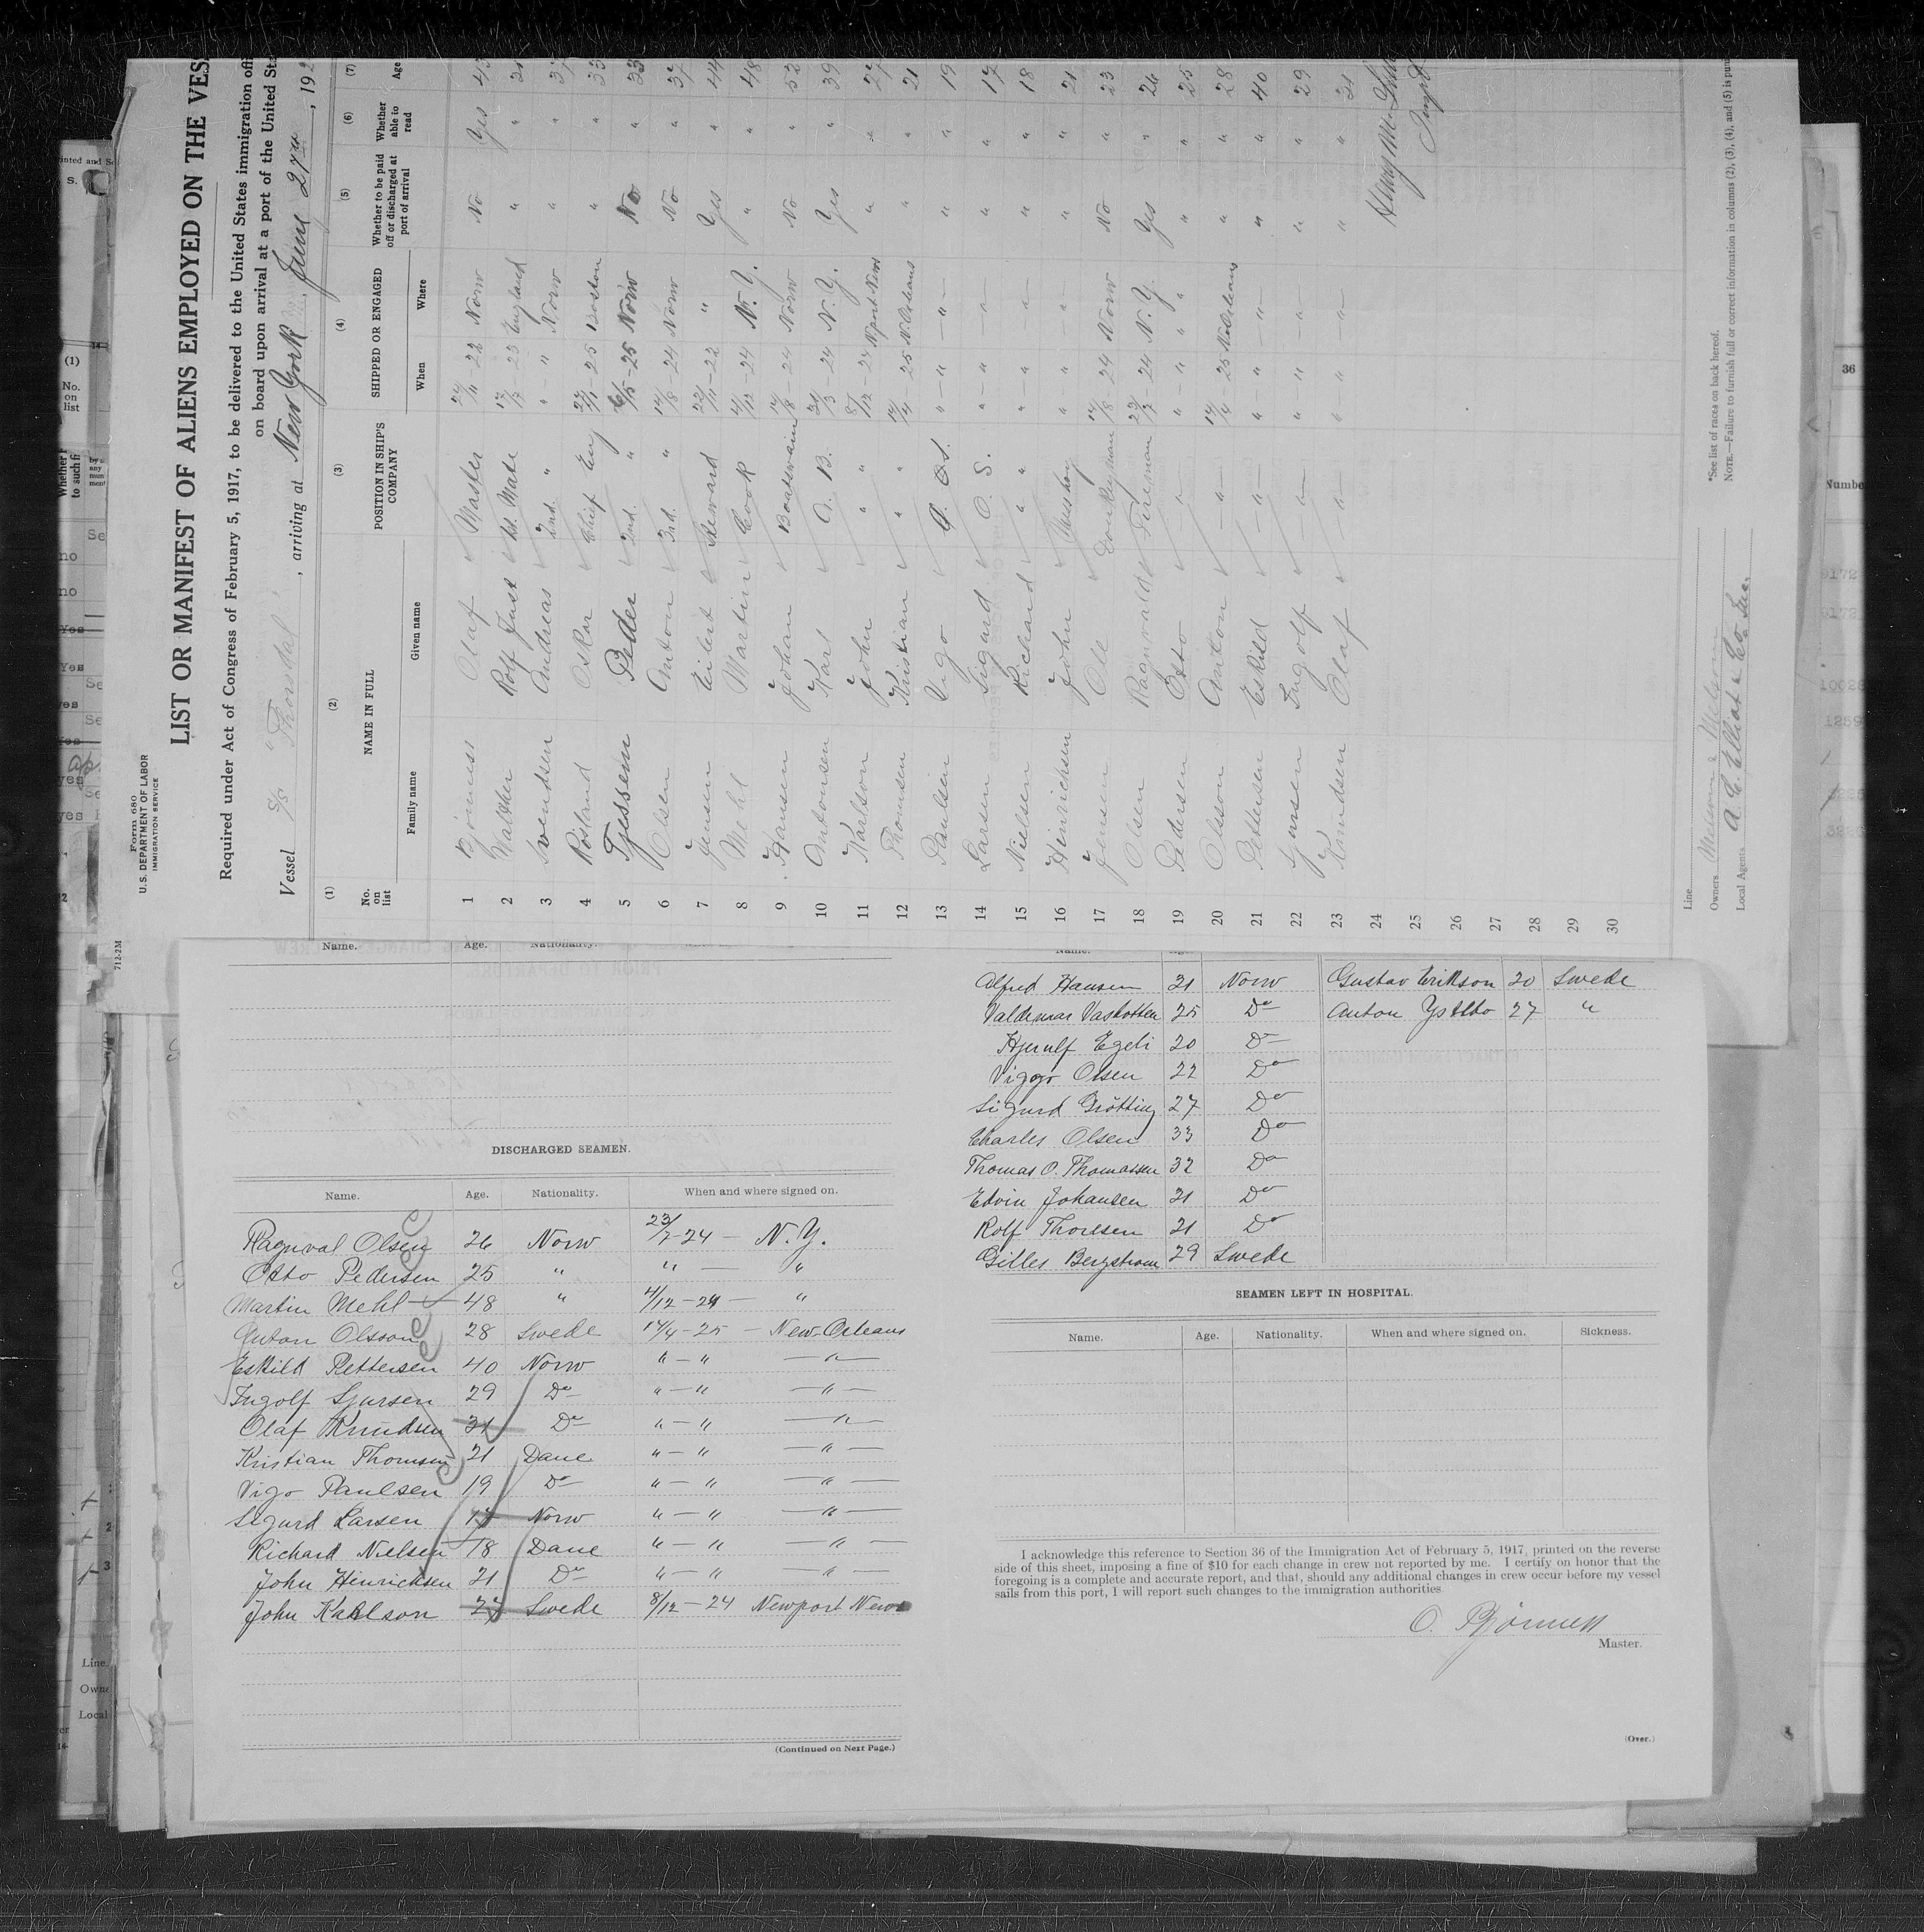 Form 680
U.S. DEPARTMENT OF LABOR
IMMIGRATION SERVICE
712-2M
LIST OR MANIFEST OF ALIENS EMPLOYED ON THE VES
Required under Act of Congress of February 5, 1917, to be delivered to the United States immigration offi
on board upon arrival at a port of the United Sta
Vessel S/S "Thorsdal", arriving at New York, June 27th, 192
(1) (2) (3) (4) (5) (6) (7)
No. on list NAME IN FULL POSITION IN SHIP'S COMPANY SHIPPED OR ENGAGED Whether to be paid off or discharged at port of arrival Whether able to read Age
Family name Given name When Where
1 Bjönness Olaf Master 27/11-22 Norw No Yes 43
2 Walther Rolf Just 1st. Mate 17/2-23 England " "
3 Svendsen Andreas 2nd. " " - " Norw " " 37
4 Rosland Oskar Chief Eng 27/1-25 Boston " " 33
5 Tjessem Peder 2nd. " 6/5-25 Norw No " 33
6 Olsen Anton 3rd. " 14/8-24 Norw No " 37
7 Jensen Eilert Steward 22/11-22 " Yes " 44
8 Mehl Martin Cook 4/12-24 N.Y. " " 48
9 Hansen Johan Boatswain 14/8-24 Norw No " 52
10 Antonsen Karl A.B. 24/3-24 N.Y. Yes " 39
11 Karlson John " 8/12-24 Nport News " " 27
12 Thomsen Kristian " 14/4-25 N.Orleans " " 21
13 Paulsen Vigo O.S. " - " - " - " " 19
14 Larsen Sigurd O.S. " - " " " " 17
15 Nielsen Richard " " " " " " 18
16 Hinrichsen John Mess boy " " " " " 21
17 Jensen Ole Donkeyman 14/8-24 Norw No " 23
18 Olsen Ragnvald Fireman 23/7-24 N.Y. Yes " 26
19 Pedersen Otto " " - " " " " 25
20 Olsson Anton - " - 14/4-25 N.Orleans " " 28
21 Pettersen Eskild - " - " - " - " - " " 40
22 Sjursen Ingolf - " - " " - " - " " 29
23 Knudsen Olaf - " - " - " - " - " " 31
24
25
26
27
28
29
30
Henry M.
Line
Owners Melsom & Melsom
Local Agents A. C. Elliot & Co Inc.
*See list of races on back hereof.
NOTE.—Failure to furnish full or correct information in columns (2), (3), (4), and (5) is puni
Name. Age. Nationality.
DISCHARGED SEAMEN.
Name. Age. Nationality. When and where signed on.
Ragnval Olsen 26 Norw 23/7-24 — N.Y.
Otto Pedersen 25 " " — "
Martin Mehl 48 " 4/12-24 — "
Anton Olsson 28 Swede 14/4-25 — New-Orleans
Eskild Pettersen 40 Norw " — " — " —
Ingolf Sjursen 29 Do " — " — " —
Olaf Knudsen 31 Do " — " — " —
Kristian Thomsen 21 Dane " — " — " —
Vigo Paulsen 19 Do " — " — " —
Sigurd Larsen 17 Norw " — " — " —
Richard Nielsen 18 Dane " — " — " —
John Hinrichsen 21 Do " — " — " —
John Karlson 27 Swede 8/12-24 Newport News
(Continued on Next Page.)
Name.
Alfred Hansen 31 Norw Gustav Erikson 20 Swede
Valdemar Vasbotten 25 Do Anton Ystebo 27 "
Hjerulf Egeli 20 Do
Viggo Olsen 22 Do
Sigurd Grötting 27 Do
Charles Olsen 33 Do
Thomas O. Thomassen 32 Do
Edvin Johansen 31 Do
Rolf Thoresen 21 Do
Gilles Bergstrom 29 Swede
SEAMEN LEFT IN HOSPITAL.
Name. Age. Nationality. When and where signed on. Sickness.
I acknowledge this reference to Section 36 of the Immigration Act of February 5, 1917, printed on the reverse
side of this sheet, imposing a fine of $10 for each change in crew not reported by me. I certify on honor that the
foregoing is a complete and accurate report, and that, should any additional changes in crew occur before my vessel
sails from this port, I will report such changes to the immigration authorities.
O. Bjönness
Master.
(Over.)